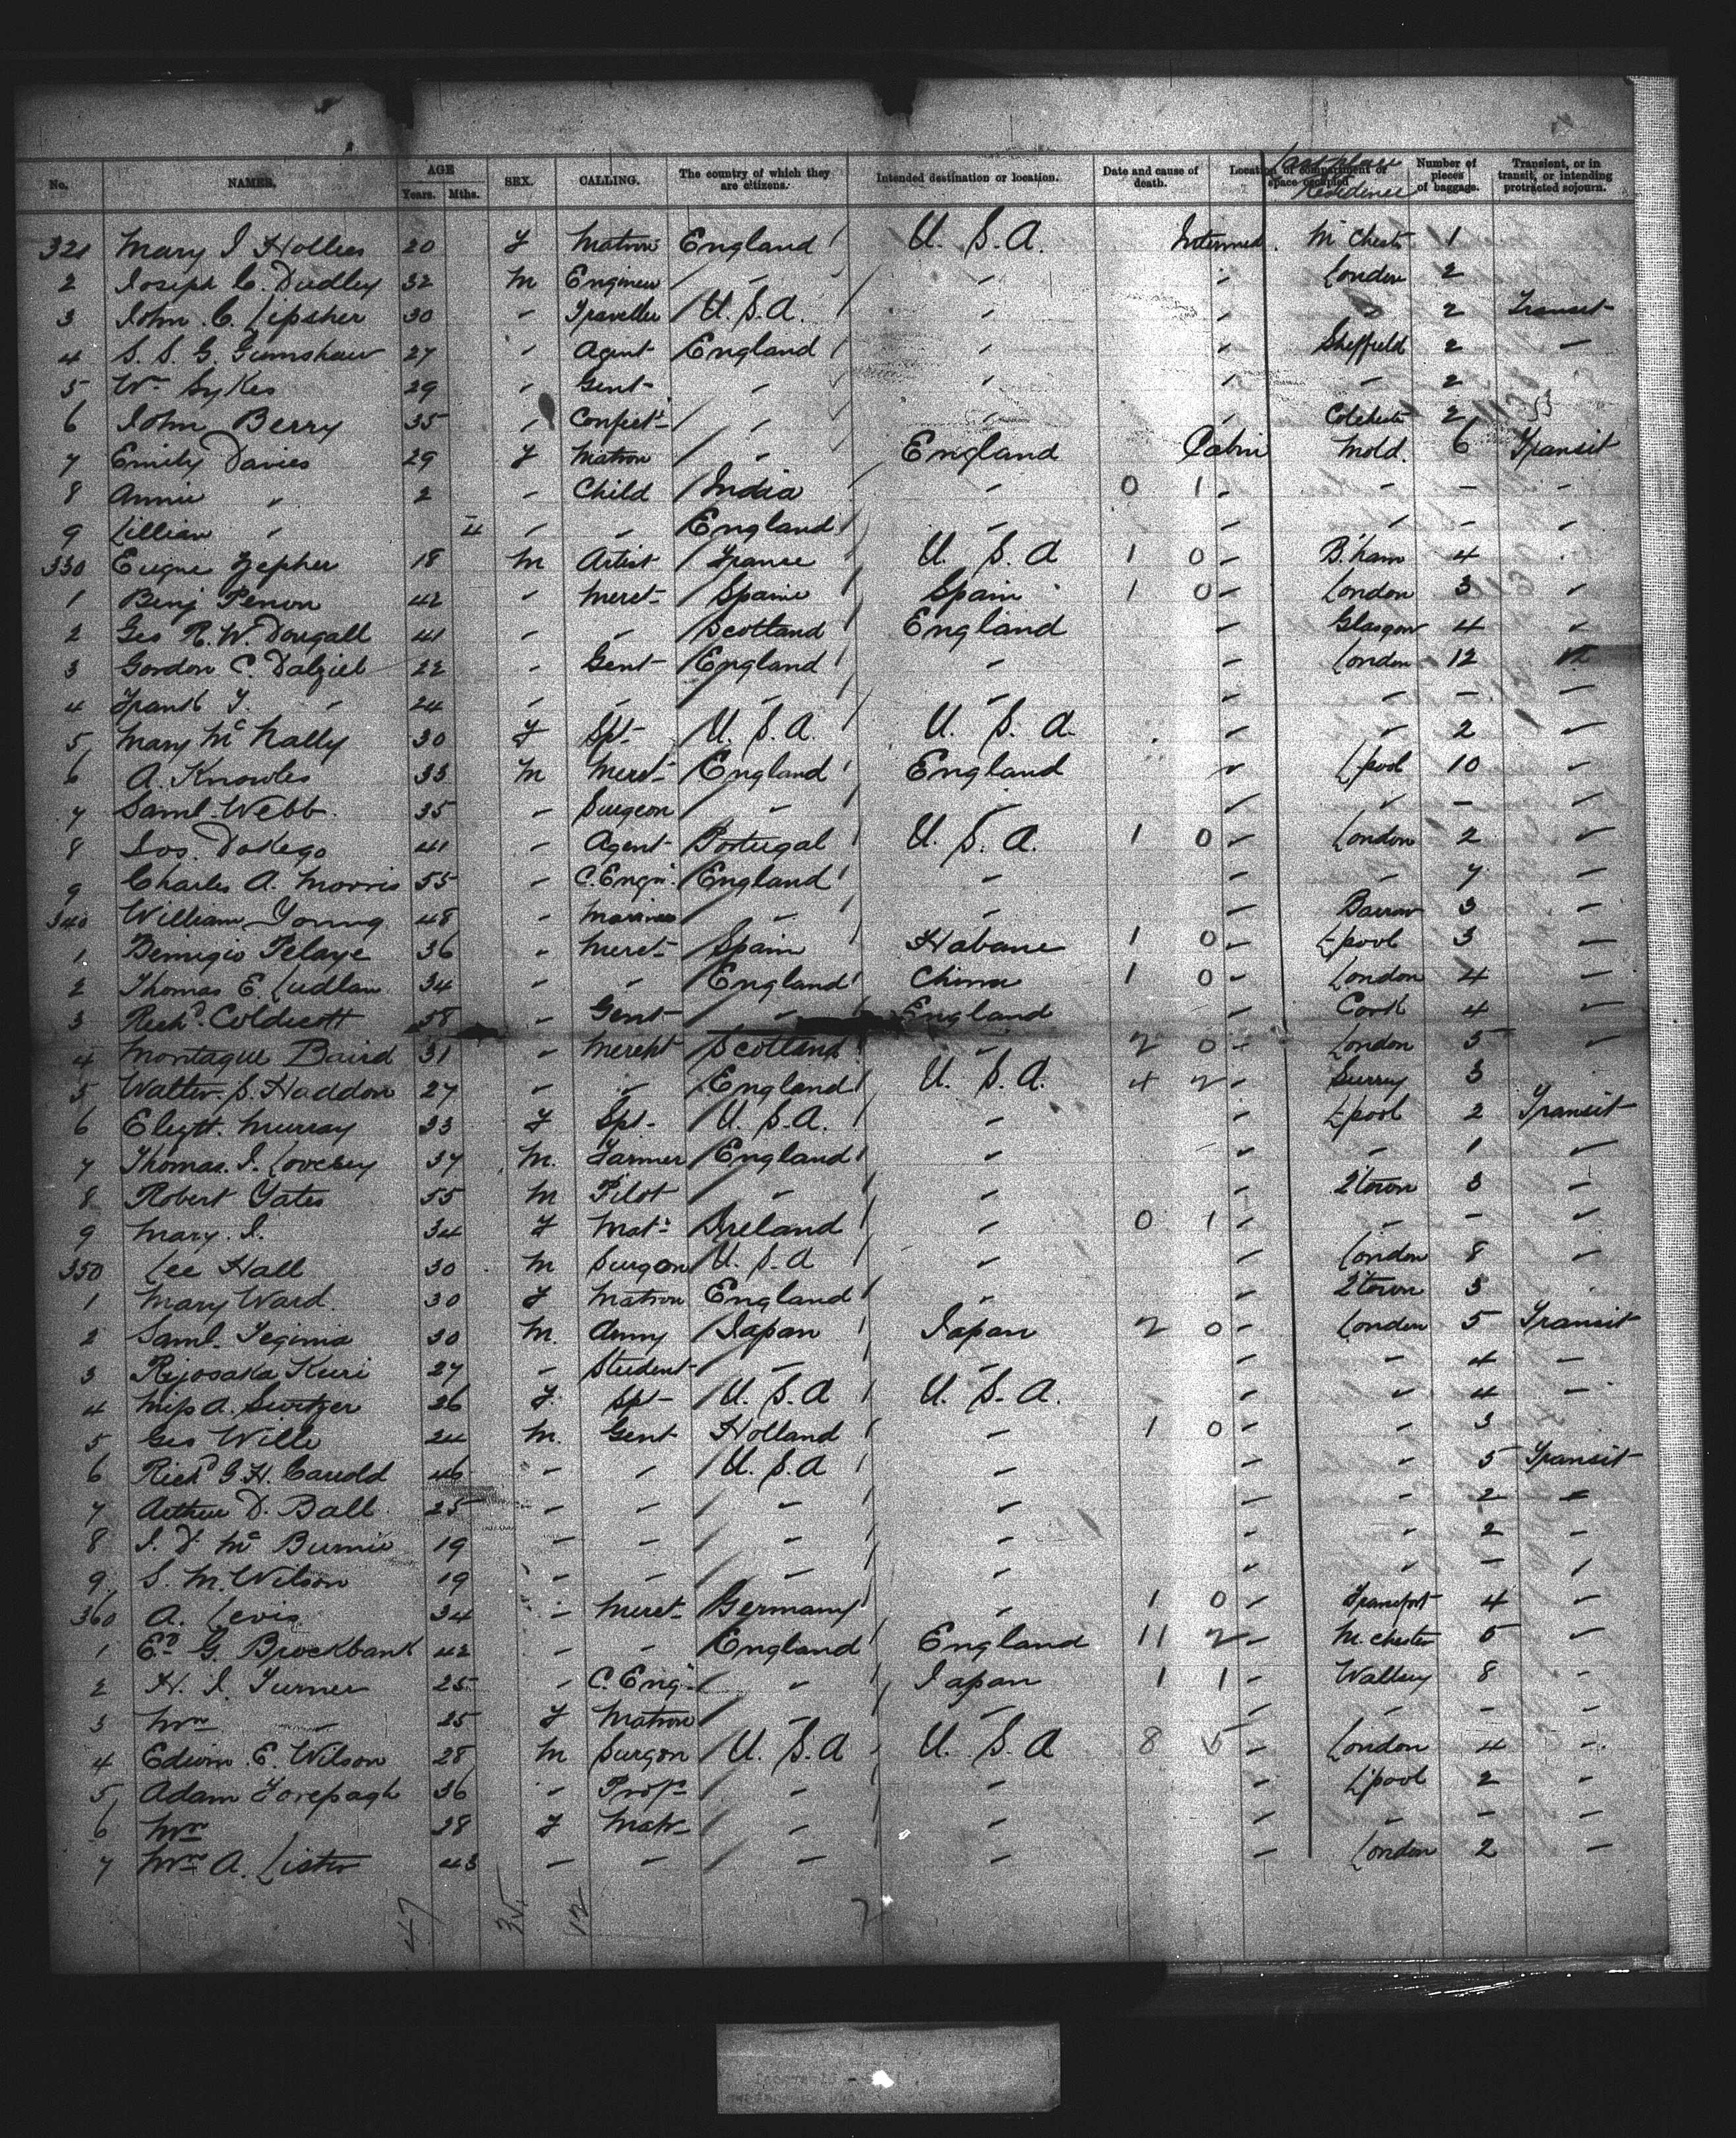 No. NAMES. AGE Years. Mths. SEX. CALLING. The country of which they are citizens. Intended destination or location. Date and cause of death. Location of compartment or space occupied Last place Residence Number of pieces of baggage. Transient, or in transit, or intending protracted sojourn.
321 Mary J Hollies 20 F Matron England U.S.A. Intermed. M'Chestr 1
2 Joseph C. Dudley 32 M Engineer " " " London 2
3 John C. Lipsher 30 " Traveller U.S.A. " " 2 Transit
4 S. S. G. Gumshaw 27 " Agent England " " Sheffield 2 "
5 Wm Sykes 29 " Gent " " " " 2
6 John Berry 35 " Confectr " " " Colchestr 2
7 Emily Davies 29 F Matron " England Cabin Mold. 6 Transit
8 Annie " 2 " Child India " 0 1 " " " "
9 Lillian " 4 " " England " " " " "
330 Eugne Zepher 18 M Artist France U.S.A 1 0 " B'ham 4
1 Benj Penon 42 " Merct Spain Spain 1 0 " London 3 "
2 Geo R. W. Dougall 41 " " Scotland England " Glasgow 4 "
3 Gordon C. Dalziel 22 " Gent England " " London 12 "
4 Frank Y. " 24 " " " " " " " "
5 Mary McNally 30 F Spt U.S.A. U.S.A. " " 2 "
6 A. Knowles 33 M Merct England England " L'pool 10 "
7 Saml Webb 35 " Surgeon " " " " " "
8 Jos. Dallego 41 " Agent Portugal U.S.A. 1 0 " London 2 "
9 Charles A. Morris 55 " C. Engr England " " " 7 "
340 William Young 48 " Mariner " " " Barrow 3 "
1 Bemigio Pelaye 36 " Merct Spain Habane 1 0 " L'pool 3 "
2 Thomas E. Ludlaw 34 " " England China 1 0 " London 4 "
3 Richd Coldicott 58 " Gent " England " Cork 4 "
4 Montague Baird 31 " Mercht Scotland " 2 0 " London 5 "
5 Walter S. Haddon 27 " " England U.S.A. 4 2 " Surrey 3
6 Elizth Murray 33 F Spt U.S.A. " " L'pool 2 Transit
7 Thomas J. Lovesey 37 M. Farmer England " " " 1 "
8 Robert Yates 55 M Pilot " " " Q'town 3 "
9 Mary J. 34 F Matn Ireland " 0 1 " " " "
350 Lee Hall 30 M Surgeon U.S.A " " London 8 "
1 Mary Ward 30 F Matron England " " Q'town 3
2 Saml Teginia 30 M. Army Japan Japan 2 0 " London 5 Transit
3 Rijosaka Keiri 27 " Student " " " " 4 "
4 Miss A. Switzer 26 F. Spt U.S.A U.S.A. " " 4 "
5 Geo Wille 24 M. Gent Holland " 1 0 " " 3
6 Richd G. H. Carrold 46 " " U.S.A " " " 5 Transit
7 Arthur D. Ball 25 " " " " " " 2 "
8 J. D. McBurnie 19 " " " " " " 2 "
9 S. M. Wilson 19 " " " " " " " "
360 A. Levis 34 " Merct Germany " 1 0 " Francfort 4 "
1 Ed G. Brockbank 42 " " England England 11 2 " M'chester 5 "
2 H. J. Turner 25 " C. Engr " Japan 1 1 " 8 "
3 Mrs " 25 F Matron " " " " " "
4 Edwin E. Wilson 28 M Surgon U.S.A U.S.A 8 5 " London 4 "
5 Adam Forepagh 36 " Propr " " " L'pool 2 "
6 Mrs 28 F Matr " " " " " "
7 Mrs A. Lister 43 " " " " " London 2 "
47 35 12